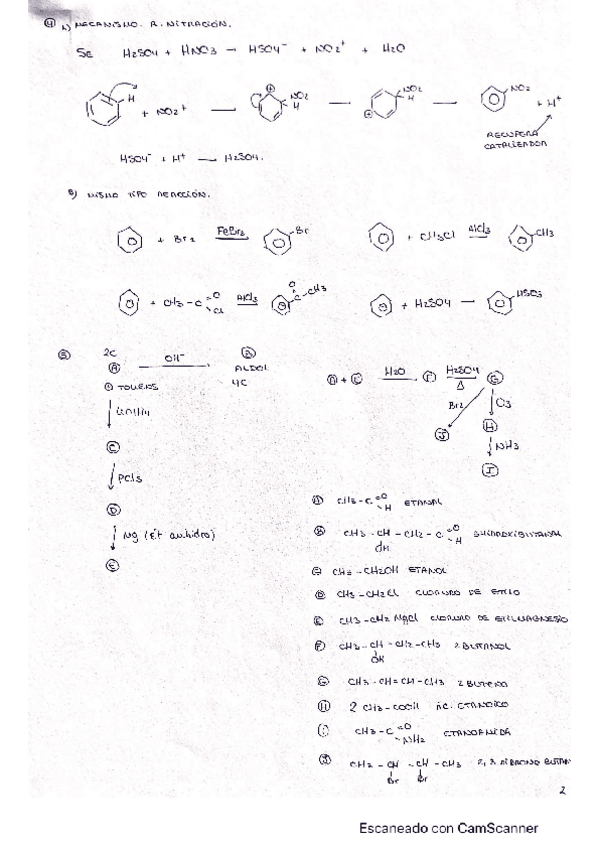 ④ A) MECANISMO. R. NITRACIÓN.
Se H2SO4 + HNO3 → HSO4⁻ + NO2⁺ + H2O
H + NO2⁺ → ⊕ NO2 H → NO2 H ⊕ → NO2 + H⁺
RECUPERA
CATALIZADOR
HSO4⁻ + H⁺ → H2SO4.
B) MISMO TIPO REACCIÓN.
+ Br2 FeBr3 Br
+ CH3Cl AlCl3 CH3
+ CH3-C=O Cl AlCl3 O C-CH3
+ H2SO4 → HSO3
⑤ 2C Ⓐ OH⁻ Ⓑ
ALDOL
4C
⊕ TOLLENS
LiAlH4
Ⓒ
PCl3
Ⓓ
Mg (Et anhidro)
Ⓔ
Ⓐ + Ⓔ H2O Ⓕ H2SO4 Δ Ⓖ
Br2 O3
Ⓙ Ⓗ
NH3
Ⓘ
Ⓐ CH3-C=O H ETANAL
Ⓑ CH3-CH-CH2-C=O H
OH
Ⓒ CH3-CH2OH ETANOL
Ⓓ CH3-CH2Cl CLORURO DE ETILO
Ⓔ CH3-CH2MgCl CLORURO DE ETILMAGNESIO
Ⓕ CH3-CH-CH2-CH3 2 BUTANOL
OH
Ⓖ CH3-CH=CH-CH3 2 BUTENO
Ⓗ 2 CH3-COOH ÁC. ETANOICO
Ⓘ CH3-C=O NH2 ETANAMIDA
Ⓙ CH3-CH-CH-CH3 2,3 DIBROMO BUTAN
Br Br
2
Escaneado con CamScanner